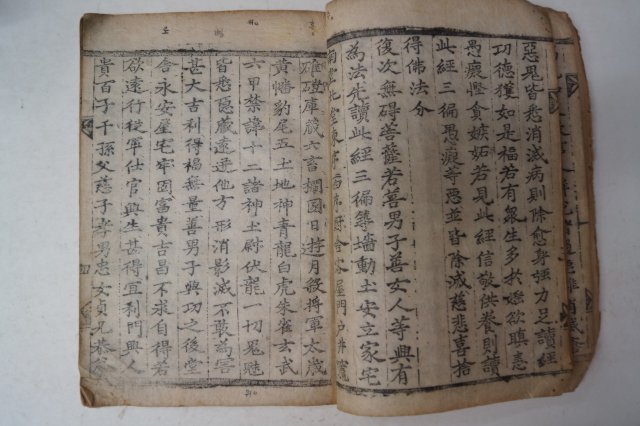 惡鬼皆悉消滅病則除愈身强力足讀經
功德獲如是福若有衆生多扵婬欲瞋恚
愚癡慳貪嫉妬若見此經信敬供養則讀
此經三徧愚癡等惡並皆除滅慈悲喜捨
得佛法分
復次無碍菩薩若善男子善女人等興有
為法先讀此經三徧築墻動土安立家宅
南堂北堂東序西序厨舍客屋門戶井竈
碓磑庫藏六畜欄圂日遊月殺將軍太歲
黃幡豹尾五土地神青龍白虎朱雀玄武
六甲禁諱十二諸神土尉伏龍一切鬼魅
皆悉隱藏遠迸他方形消影滅不敢為害
甚大吉利得福無量善男子興功之後堂
舍永安屋宅牢固富貴吉昌不求自得若
欲遠行從軍仕官興生甚得宜利門興人
貴百子千孫父慈子孝男忠女貞兄恭